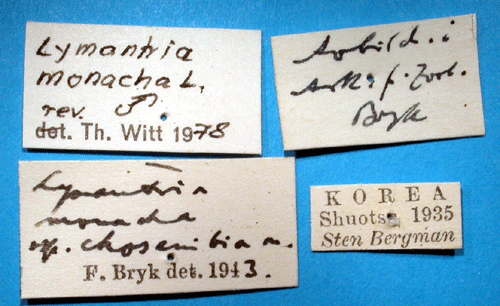 Lymantria
monacha L.
rev. ♂
det. Th. Witt 1978
Avbild. i
Ark. f. Zool.
Bryk
Lymantria
monacha
ssp. chosenibia m.
F. Bryk det. 1943.
KOREA
Shuotsu 1935
Sten Bergman